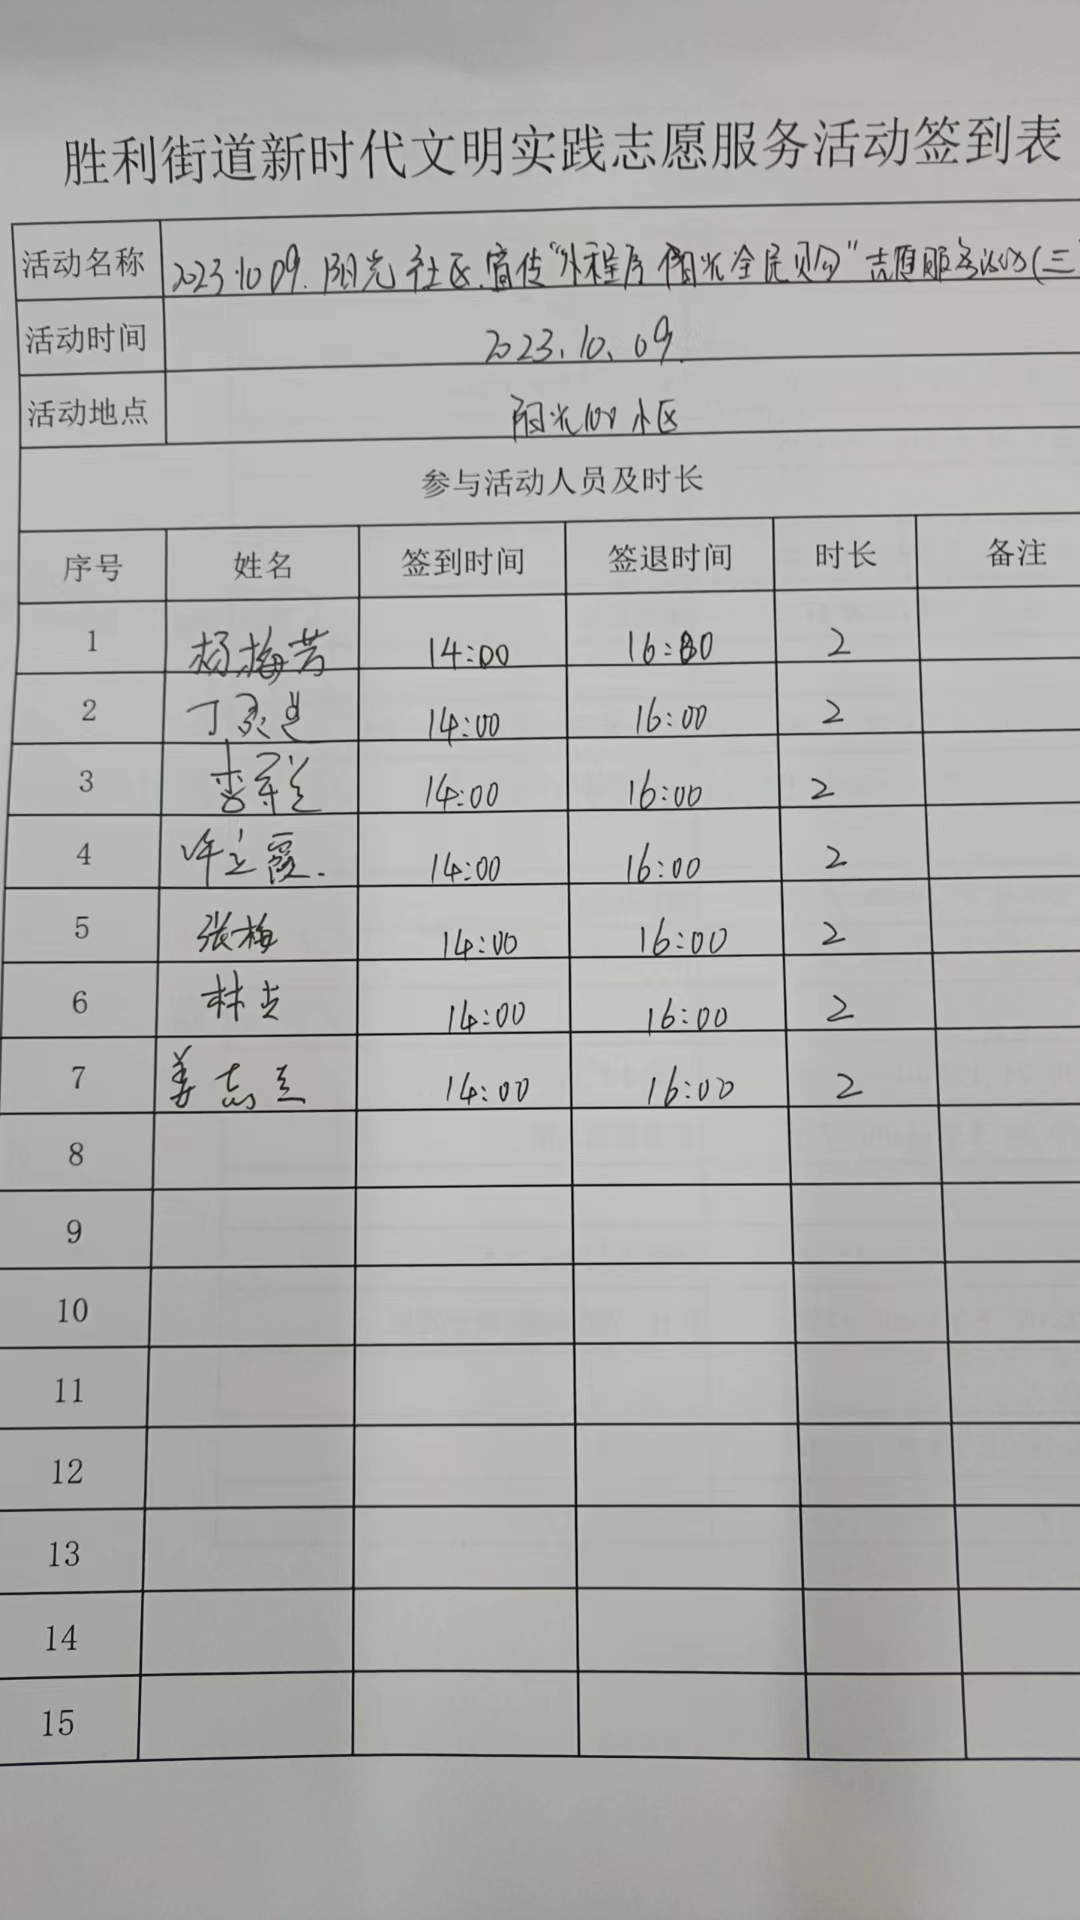 胜利街道新时代文明实践志愿服务活动签到表
活动名称 2023.10.09.阳光社区.宣传"小程序阳光全民购"志愿服务活动(三
活动时间 2023.10.09.
活动地点 阳光100小区
参与活动人员及时长
序号 姓名 签到时间 签退时间 时长 备注
1 杨梅芳 14:00 16:00 2
2 丁 14:00 16:00 2
3 李 14:00 16:00 2
4 许立霞. 14:00 16:00 2
5 张梅 14:00 16:00 2
6 林 14:00 16:00 2
7 姜志 14:00 16:00 2
8
9
10
11
12
13
14
15